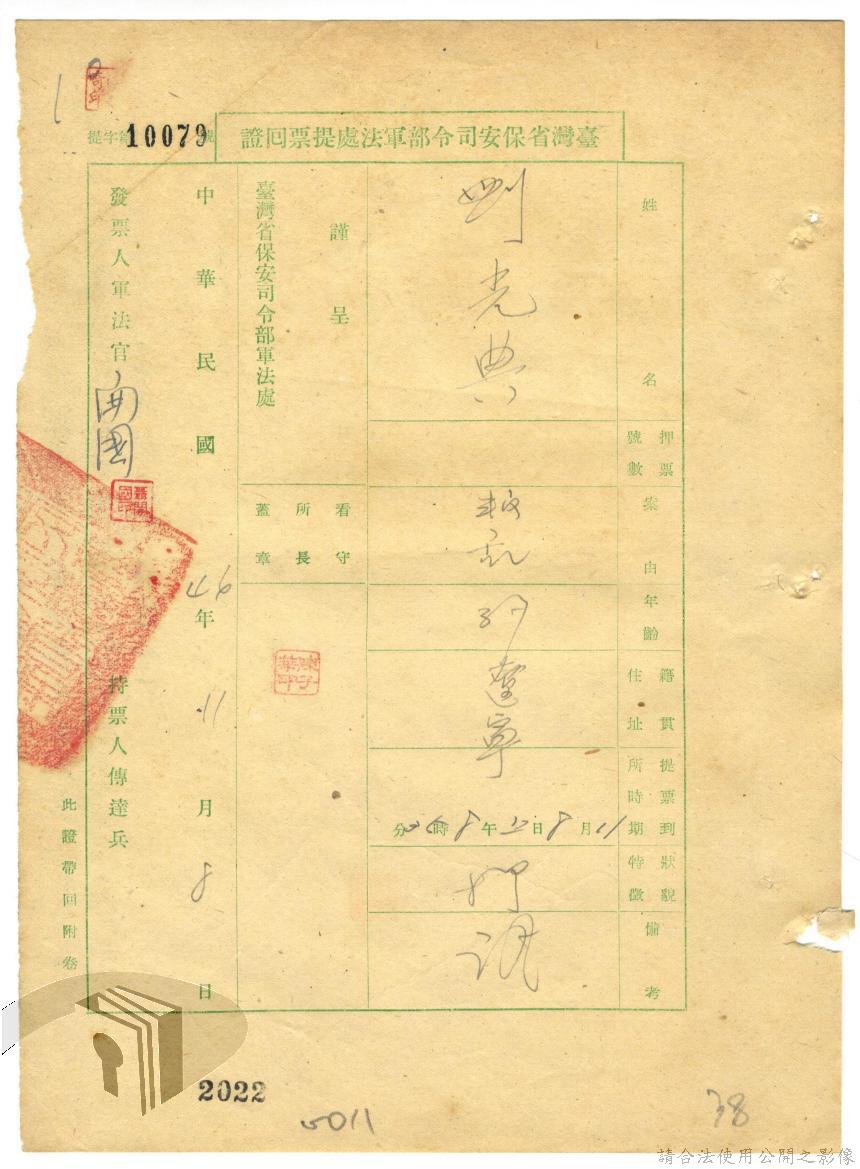 臺灣省保安司令部軍法處提票回證
提字第10079號
姓名 劉光典
押票號數
案由 叛亂
年齡
籍貫住址 遼寧
提票到所時期 11月8日上午8時 分
狀貌特徵
備考
押訊
謹呈
臺灣省保安司令部軍法處
看守所長蓋章
中華民國46年11月8日
發票人軍法官 開國
持票人傳達兵
此證帶回附卷
2022
5011
38
請合法使用公開之影像